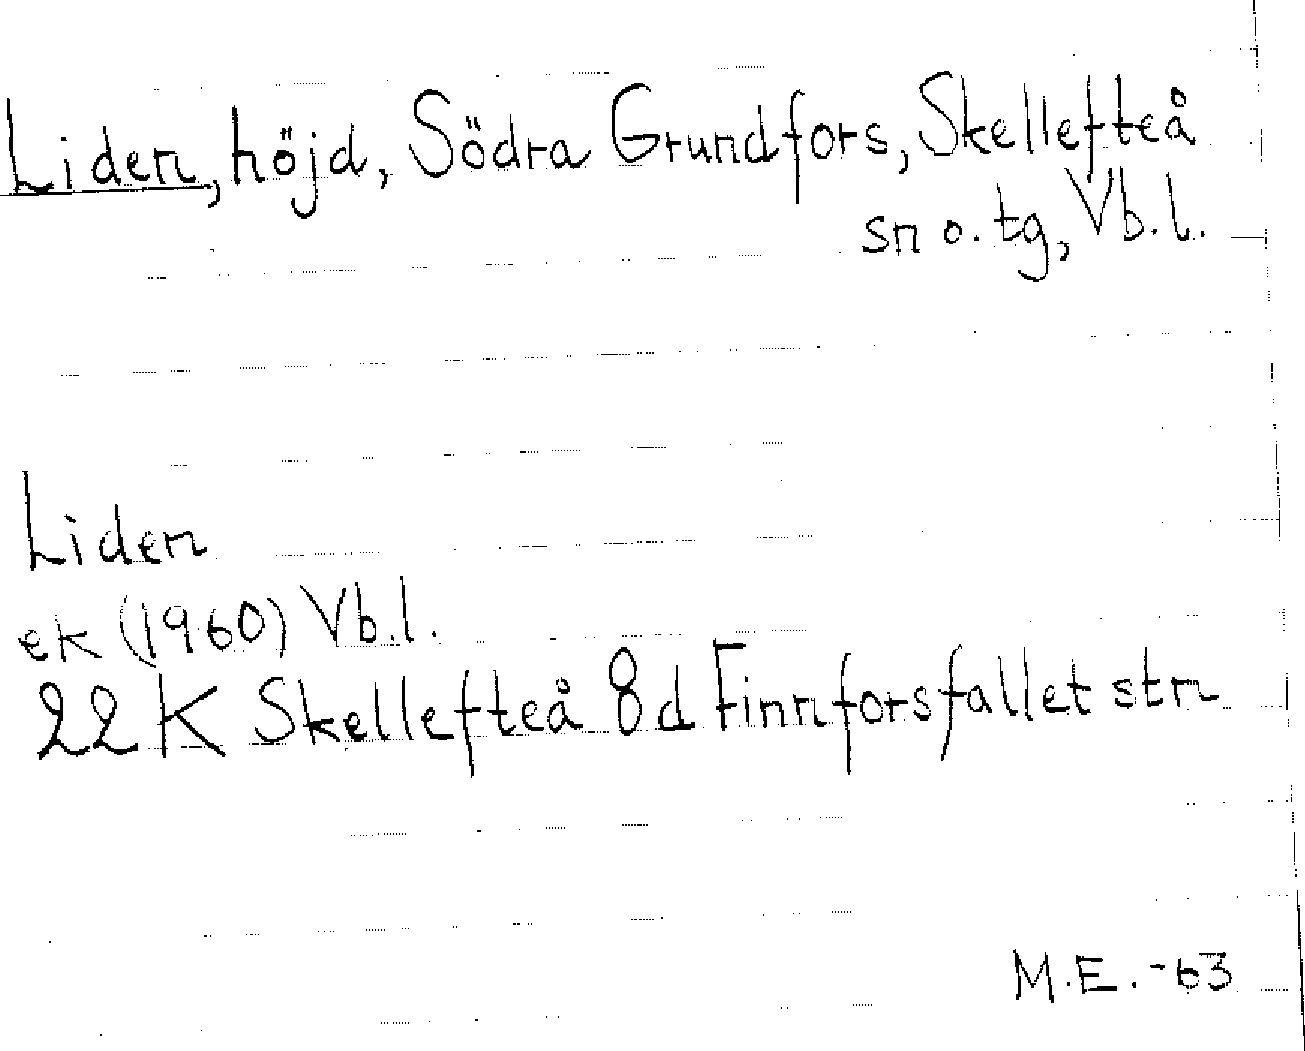 Liden, höjd, Södra Grundfors, Skellefteå
sn o. tg, Vb.l.
Liden
ek (1960) Vb.l.
22 K Skellefteå 8 d Finnforsfallet stn
M.E. -63